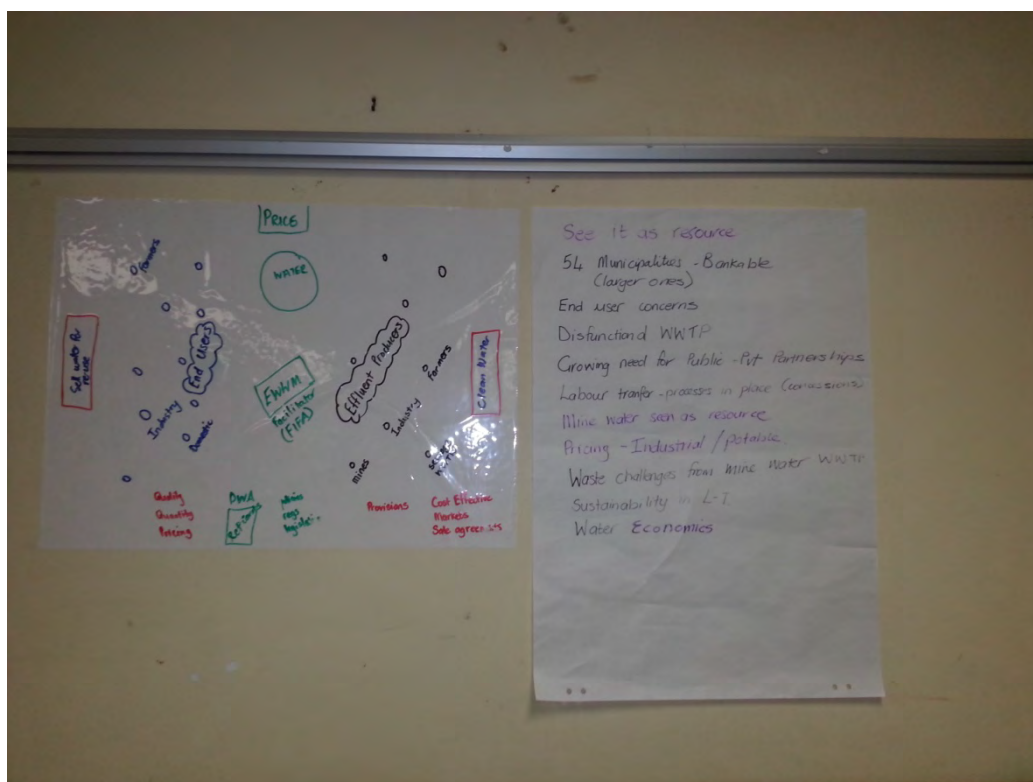 PRICE
WATER
farmers
Sell water for
re-use
End Users
Industry
Domestic
EWWM
Facilitator
(FIFA)
Effluent Producers
farmers
Industry
mines
Clean Water
Quality
Quantity
Pricing
DWA
Provisions
Cost Effective
Markets
See it as resource
54 Municipalities - Bankable
(larger ones)
End user concerns
Disfunctional WWTP
Growing need for Public - Pvt Partnerships
Labour tranfer - processes in place
Mine water seen as resource
Pricing - Industrial / potable
Waste challenges from mine water WWTP
Sustainability in L-T
Water Economics